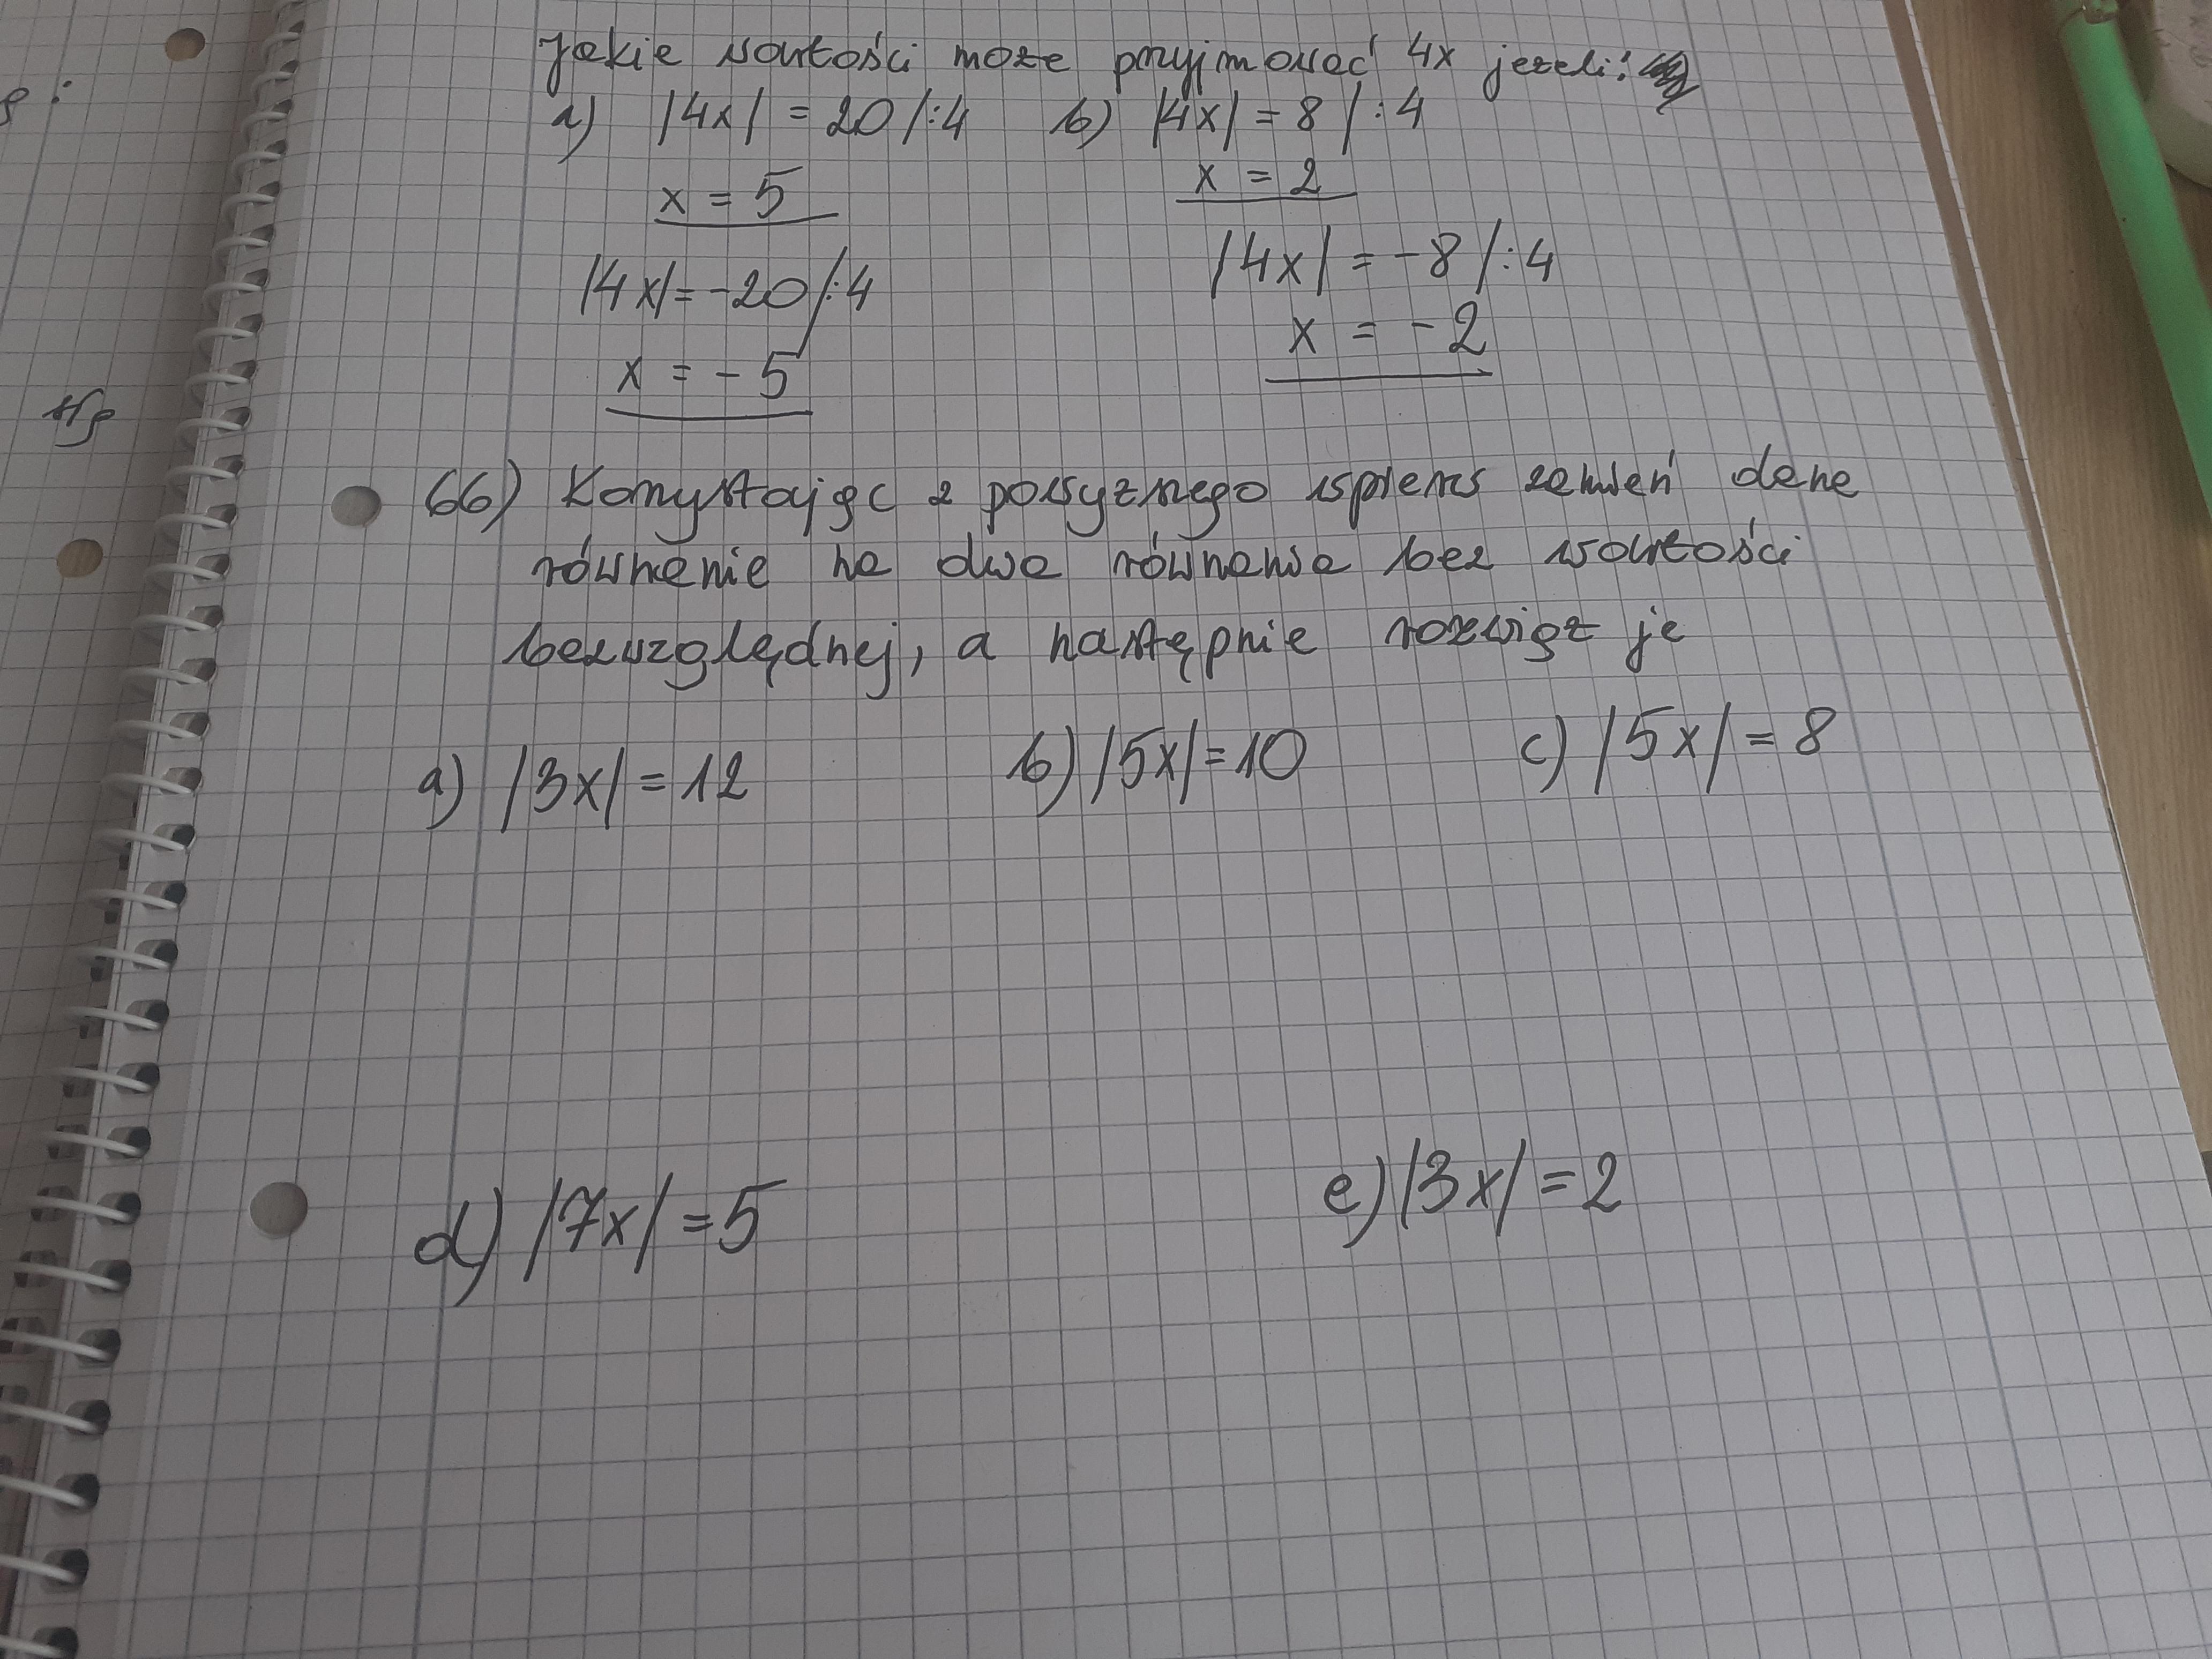 Jakie wartości może przyjmować 4x jeżeli:
a) |4x| = 20 /:4 b) |4x| = 8 /:4
x = 5 x = 2
|4x| = -20 /:4 |4x| = -8 /:4
x = -5 x = -2
66) Korzystając z powyższego wpisems zamień dane
równanie na dwa równania bez wartości
bezwzględnej, a następnie rozwiąż je
a) |3x| = 12 b) |5x| = 10 c) |5x| = 8
d) |7x| = 5 e) |3x| = 2